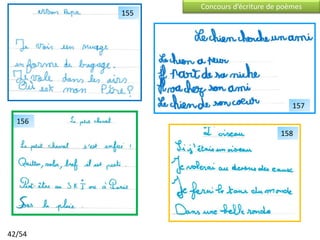 Concours d'écriture de poèmes
155
Mon Papa
Je vois un nuage
en forme de bagage.
Je vole dans les airs
Où est mon Père?
Le chien cherche un ami
Le chien a peur
Il part de sa niche
Il va chez son ami
Le chien de son cœur
157
156
Le petit cheval
Le petit cheval s'est enfui !
bref il est parti.
Peut être au SRI ou à Paris
Sous la pluie.
158
L'oiseau
Si j'étais un oiseau
Je volerai au dessus des eaux
Je ferai le tour du monde
Dans une belle ronde
42/54